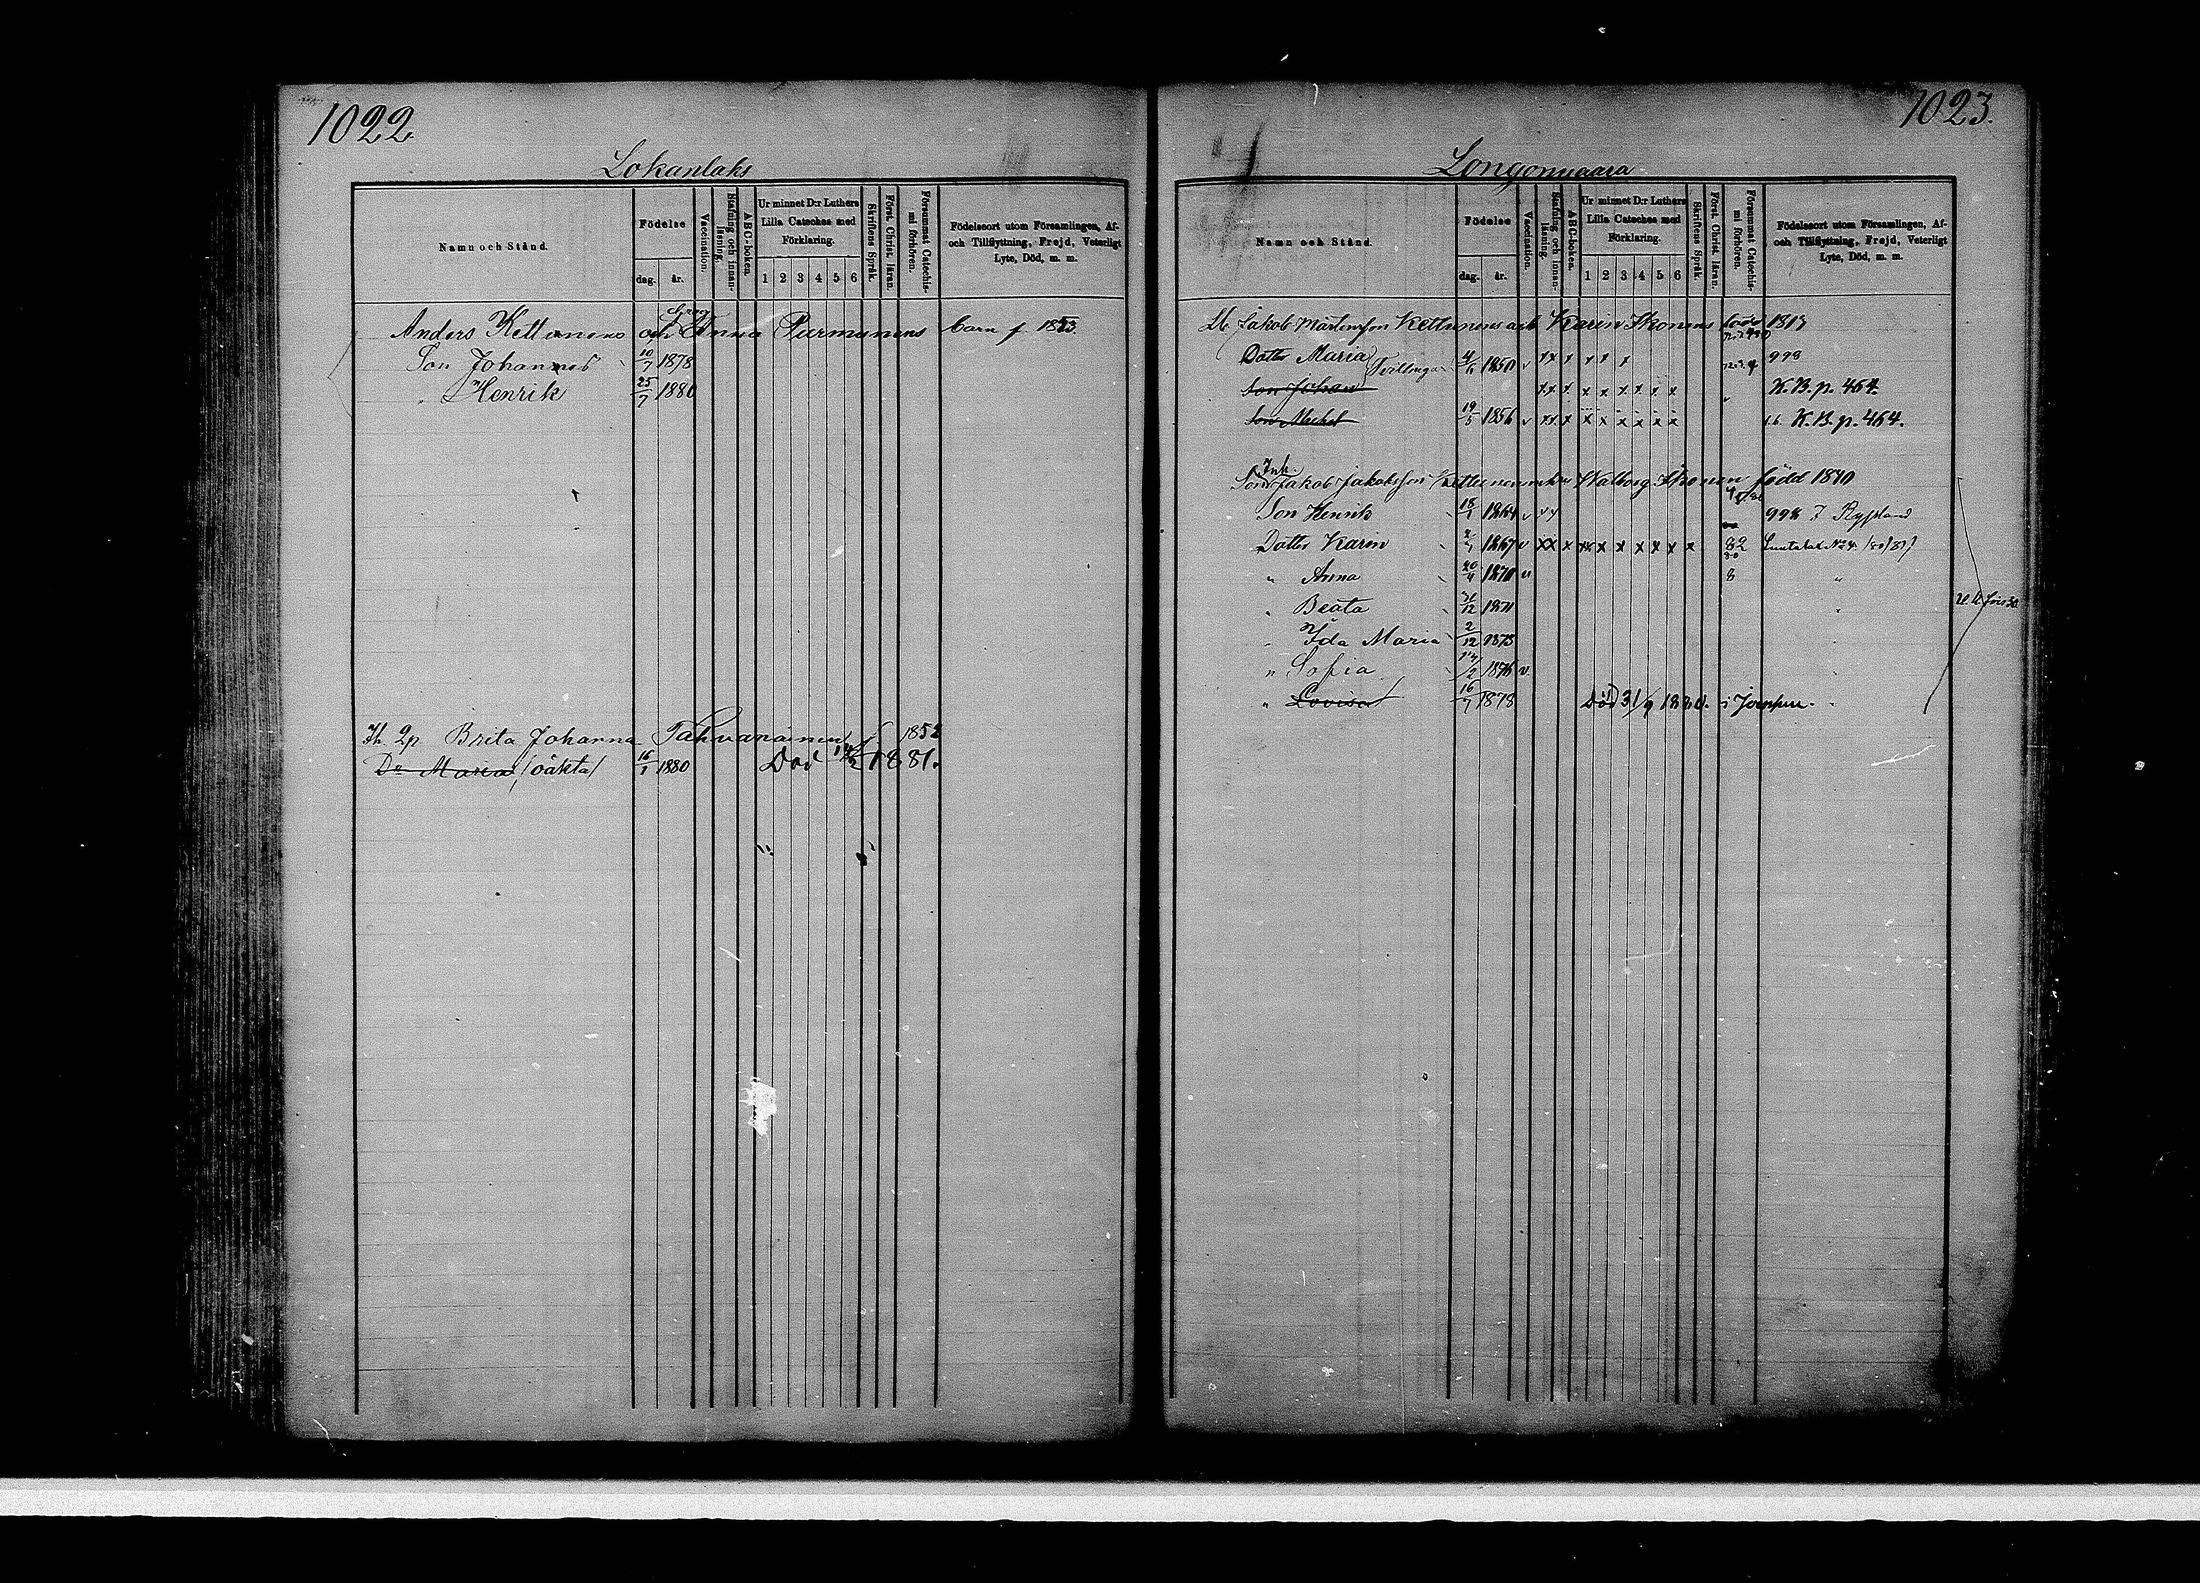 1022
Lokanlaks
Namn och Stånd.
Födelse
dag.
år.
Vaccination.
Stafning och innan-
läsning.
A B C-boken.
Ur minnet D:r Luthers
Lilla Cateches med
Förklaring.
1 2 3 4 5 6
Skriftens Språk.
Först. Christ. läran.
Försummat Catechis-
mi förhören.
Födelseort utom Församlingen, Af-
och Tillflyttning, Frejd, Veterligt
Lyte, Död, m. m.
Anders Kettunens och Anna Parmunens barn f. 1853
Son Johannes 10/7 1878
" Henrik 25/7 1880
Ih. 2p Brita Johanna Tahvanainen f 1852
Dr Maria /oäkta/ 16/1 1880 Död 1881.
1023.
Longonvaara
Namn och Stånd.
Födelse
dag.
år.
Vaccination.
Stafning och innan-
läsning.
A B C-boken.
Ur minnet D:r Luthers
Lilla Cateches med
Förklaring.
1 2 3 4 5 6
Skriftens Språk.
Först. Christ. läran.
Försummat Catechis-
mi förhören.
Födelseort utom Församlingen, Af-
och Tillflyttning, Frejd, Veterligt
Lyte, Död, m. m.
Jakob Mårtensson Kettunens Karin Ikonens
Dotter Maria Tvillingar 1850 v x x x x x x 998
Son Johan x x x x x x x x x K.B.p. 464.
Son Michel 19/5 1856 v x x x x x x x x x K.B.p. 464.
Inh.
Son Jakob Jakobsson Kettunen Walborg Ikonen född 1840
Son Henrik 1864 v x x 998 Ryssland
Dotter Karin 1867 v x x x x x x x x x x x 82
" Anna 1870 v 8 "
" Beata 31/12 1871 "
" Ida Maria 2/12 1873
" Sofia 1876 v
" Lovisa 16/7 1878 Död 31/9 1880. i